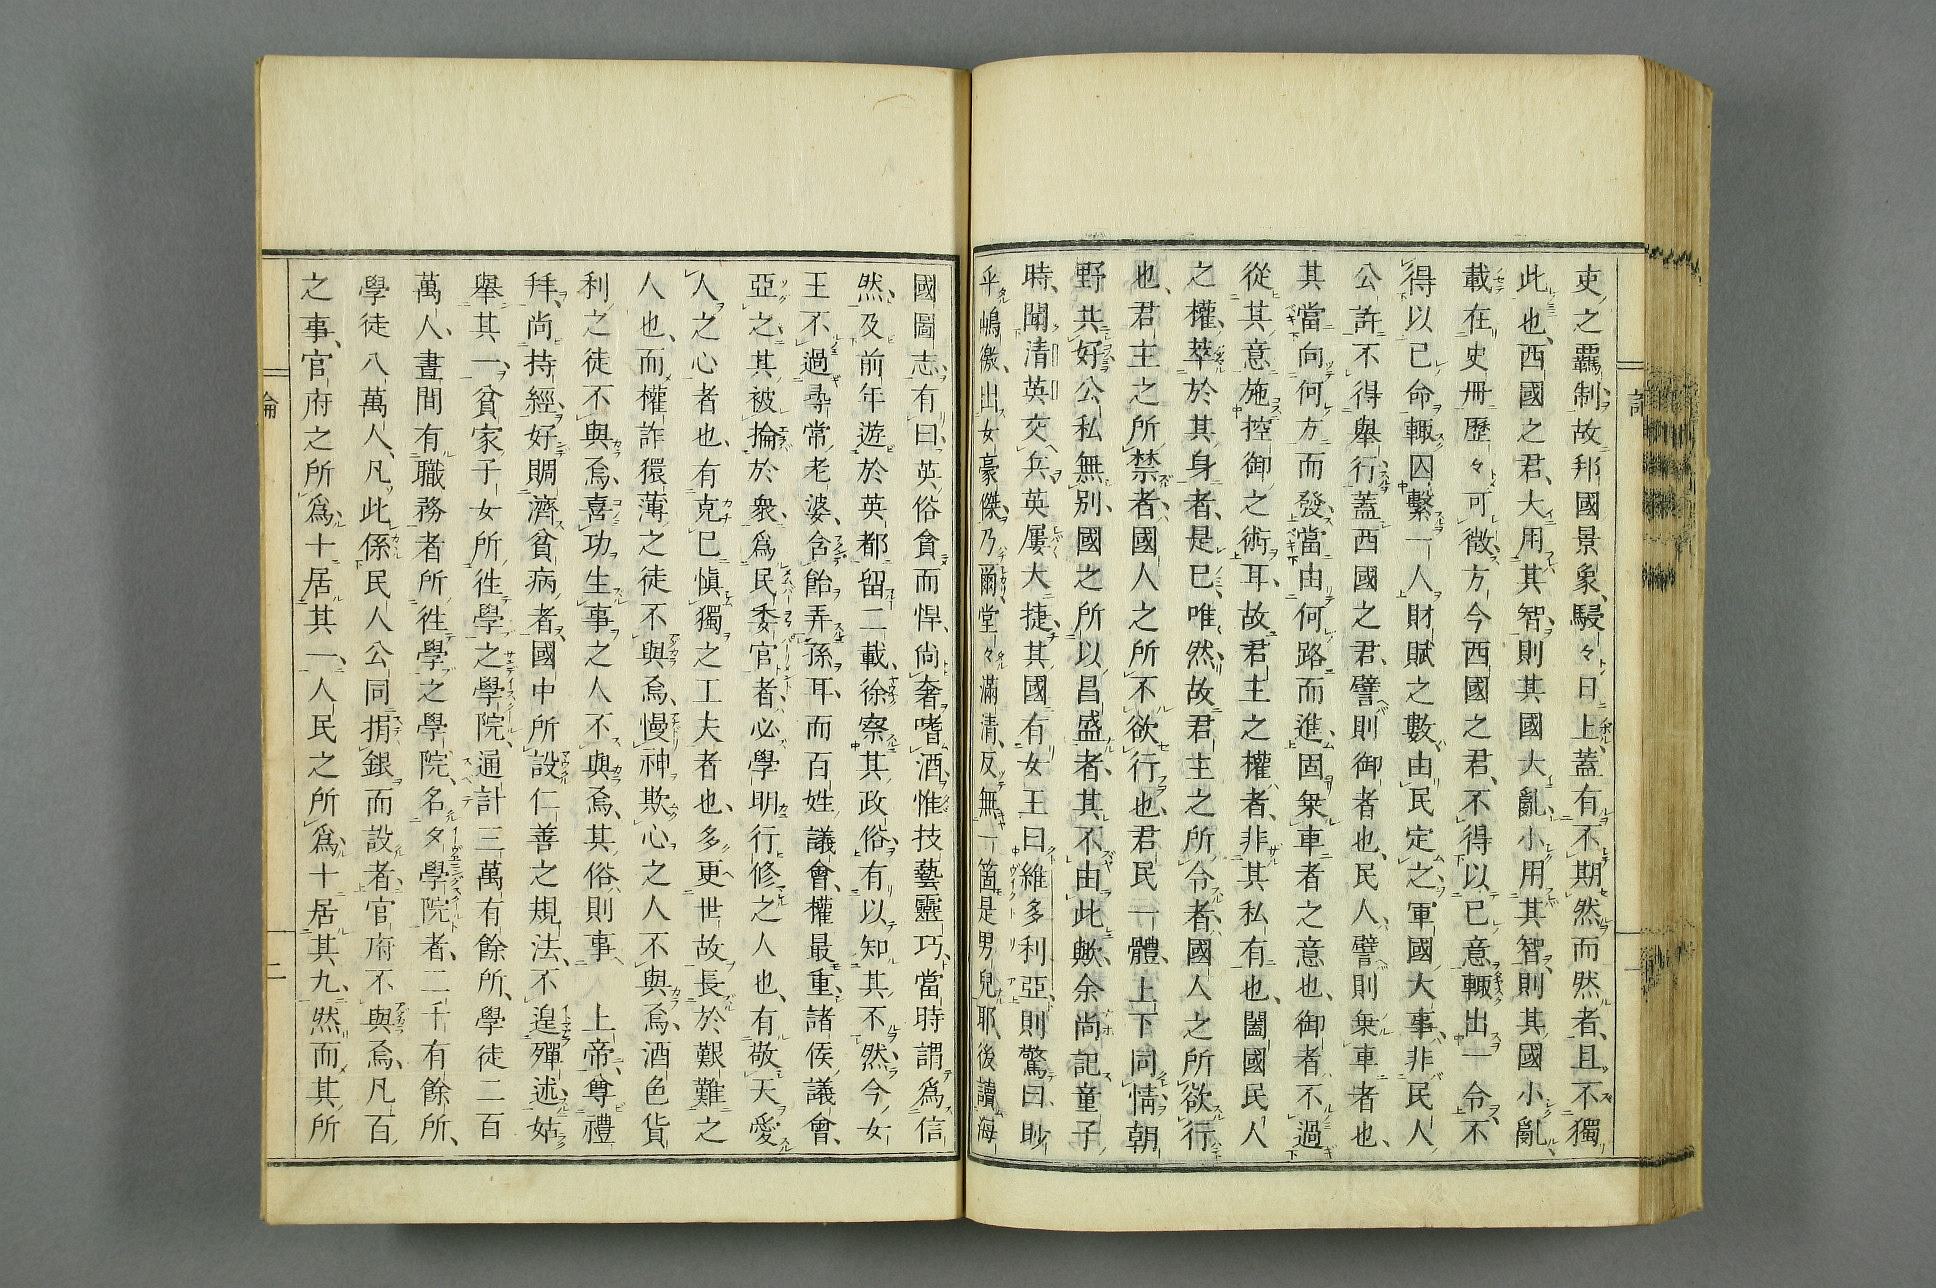 吏之羈制故邦國景象駸々日上蓋有不期然而然者、且不獨
此也、西國之君、大用其智則其國大亂小用其智則其國小亂、
載在史冊歷々可徵方今西國之君、不得以己意輙出一令不
得以己命輙囚繫一人財賦之數由民定之軍國大事、非民人
公許不得舉行蓋西國之君、譬則御者也、民人、譬則乗車者也、
其當向何方而發當由何路而進、固椉車者之意也、御者、不過
從其意施控御之術耳、故君主之權者、非其私有也、闔國民人
之權、萃於其身者、是已、唯然故君主之所令者、國人之所欲行
也、君主之所禁者、國人之所不欲行也、君民一體、上下同情、朝
野共好公私無別、國之所以昌盛者、其不由此歟余尚記童子
時、聞清英交兵英屢大捷其國有女王曰維多利亞、則驚曰、眇
乎島徼、出女豪傑乃爾堂々滿清、反無一箇是男兒耶、後讀海
國圖志、有曰、英俗貪而悍、尚奢嗜酒、惟技藝靈巧、當時謂爲信
然、及前年遊於英都留二載、徐察其政俗、有以知其不然今女
王不過尋常老婆、含飴弄孫耳、而百姓議會、權最重、諸侯議會、
亞之、其被掄於衆、爲民委官者、必學明行修之人也、有敬天愛
人之心者也、有克己愼獨之工夫者也、多更世故長於艱難之
人也、而權詐獧薄之徒不與焉、慢神欺心之人不與焉、酒色貨
利之徒不與焉、喜功生事之人不與焉、其俗則事 上帝、尊禮
拜、尚持經好賙濟貧病者、國中所設仁善之規法、不遑殫述、姑
舉其一、貧家子女所往學之學院、通計三萬有餘所、學徒二百
萬人、晝間有職務者所往學之學院、名夕學院者、二千有餘所、
學徒八萬人、凡此係民人公同捐銀而設者、官府不與焉、凡百
之事、官府之所爲、十居其一、人民之所爲、十居其九、然而其所
論
二